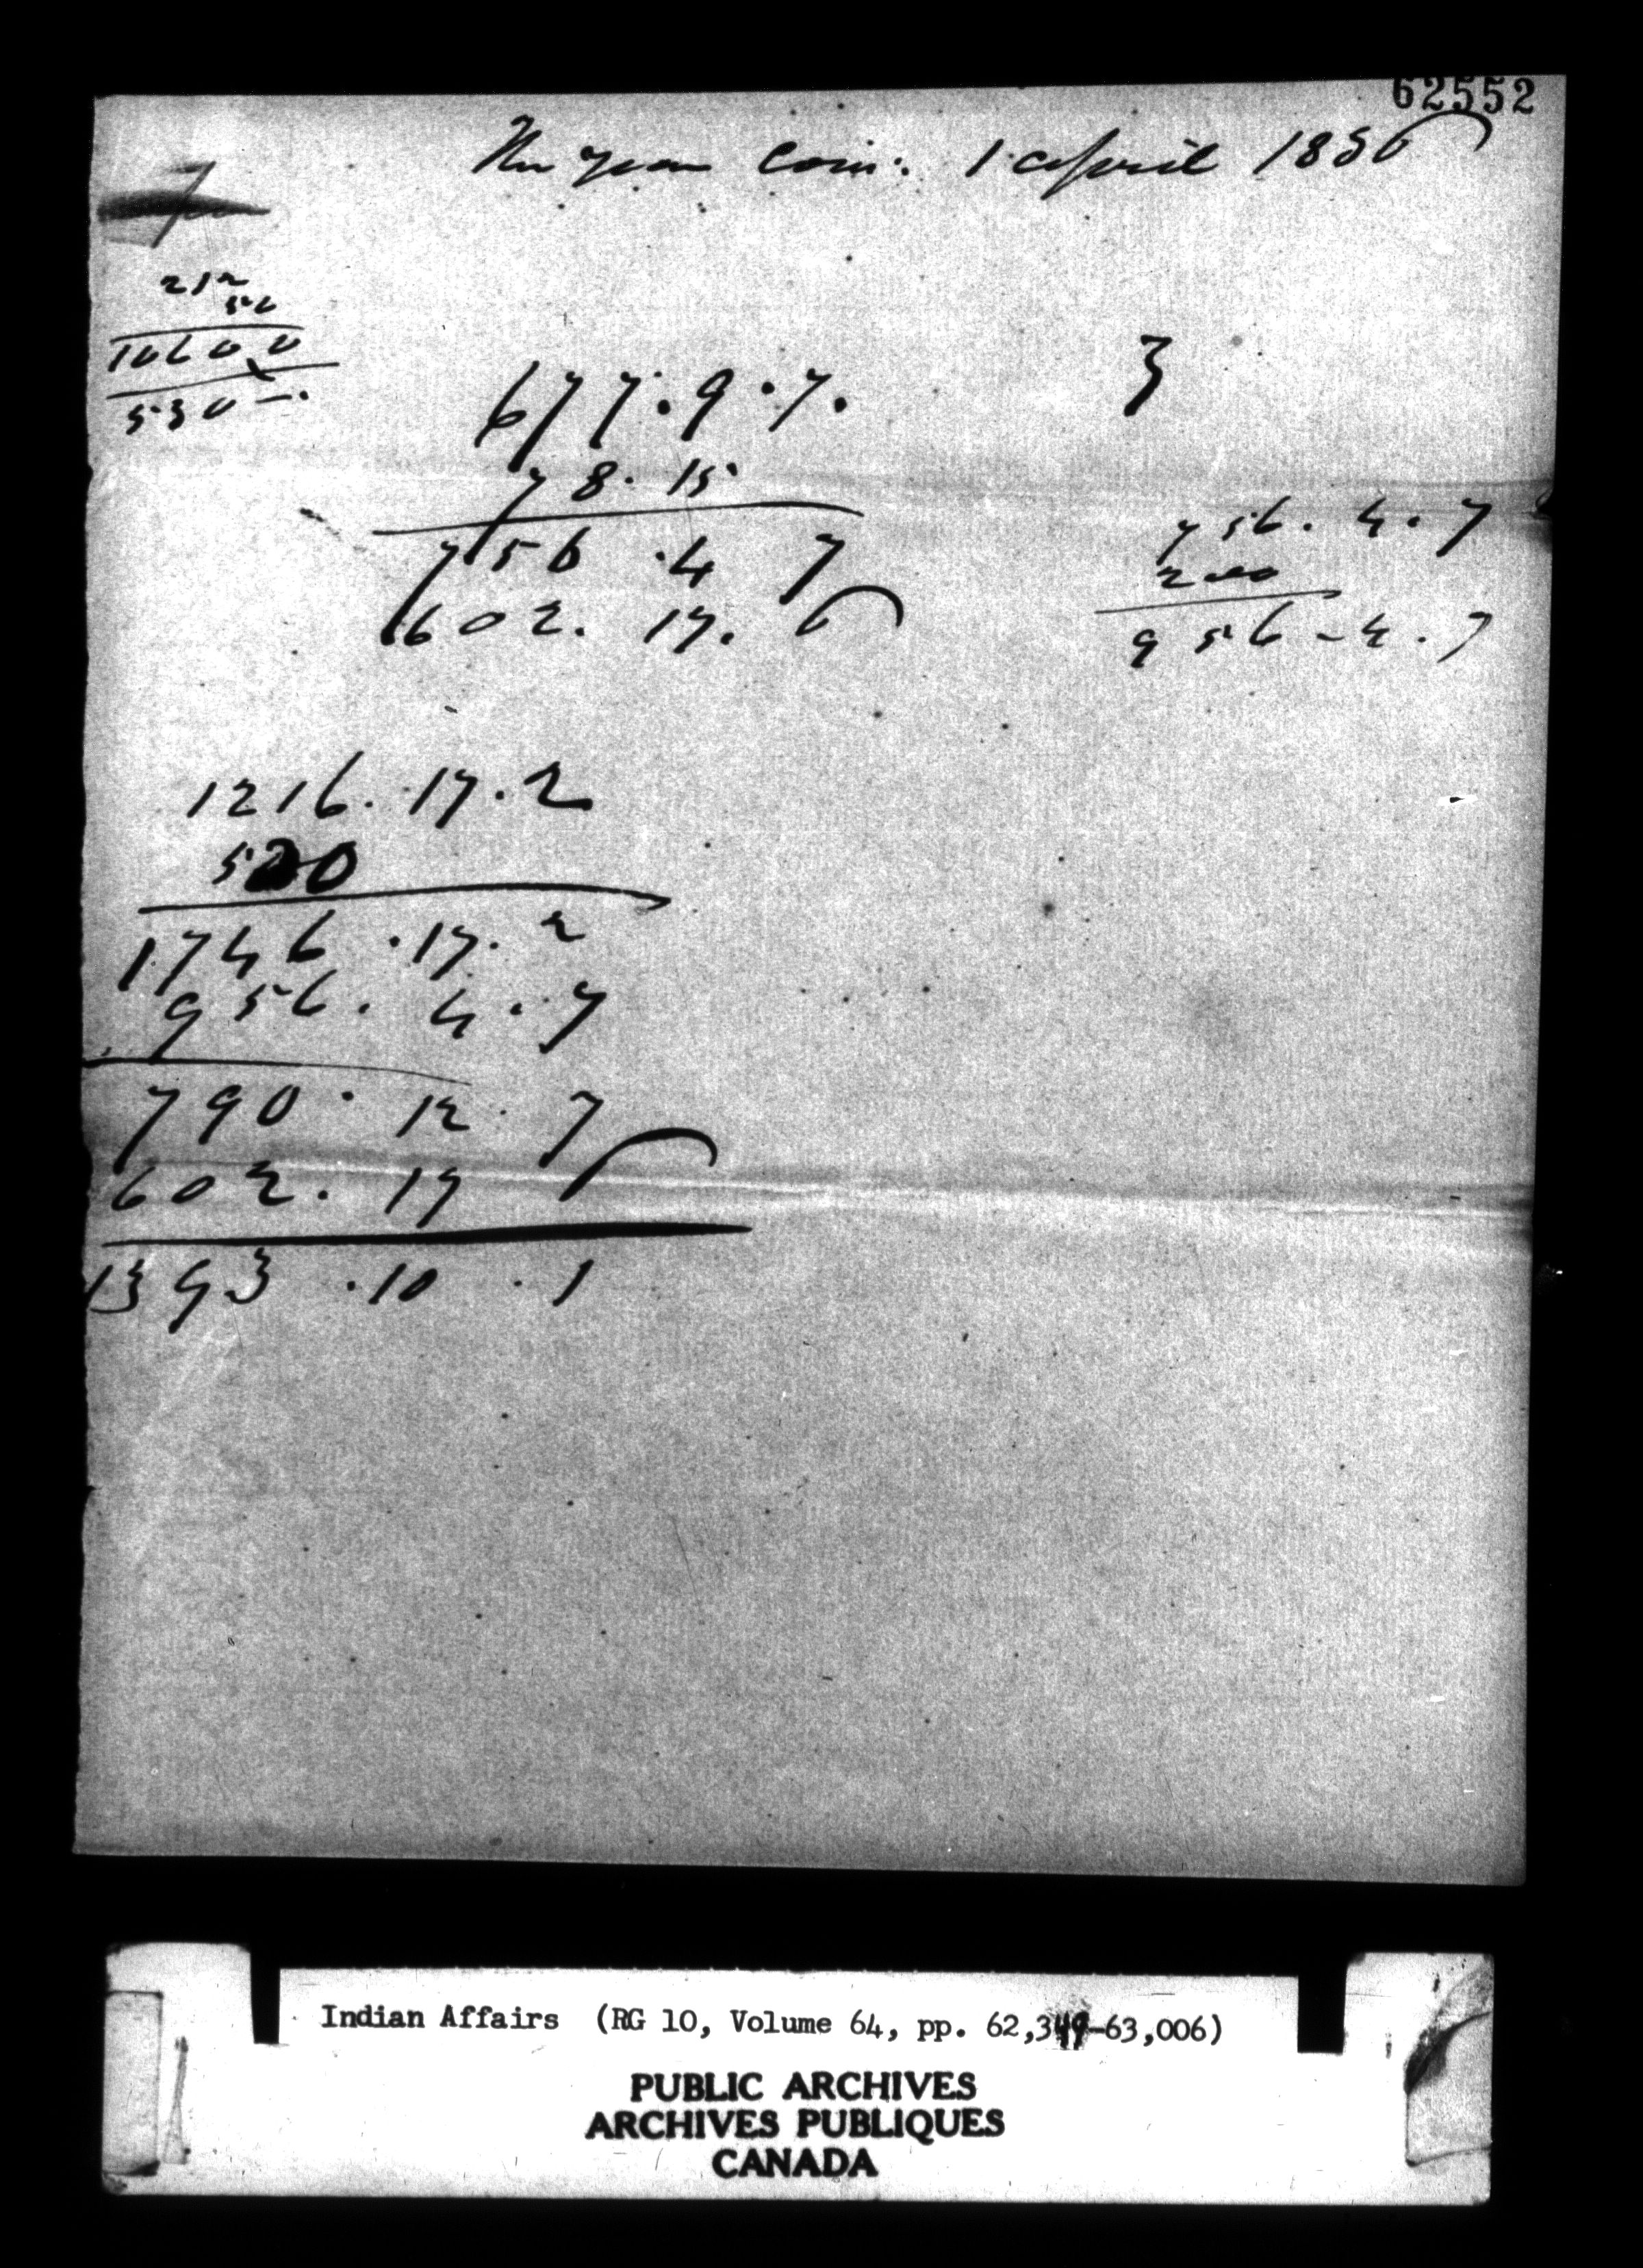 62552
The year Com: 1 april 1836
7
212
50
10600
530 -.
677.9.7.
78.15
756.4 7
602.17.6
3
756.4.7
200
956-4.7
1216.17.2
530
1746.17.2
956.4.7
790.12.7
602.17 6
1393.10.1
Indian Affairs (RG 10, Volume 64, pp. 62,349-63,006)
PUBLIC ARCHIVES
ARCHIVES PUBLIQUES
CANADA